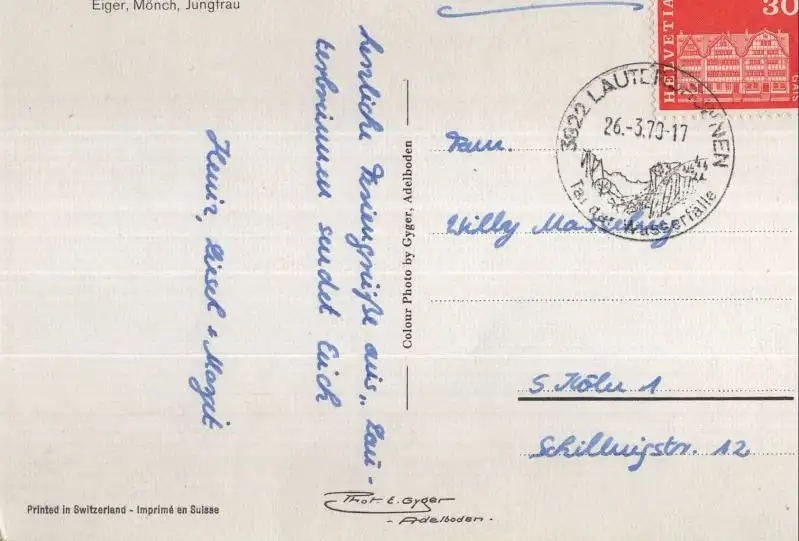 Eiger, Mönch, Jungfrau
herzliche Feriengrüße aus "Lau-
terbrunnen sendet Euch
Heinz, Liesel & Margit
Colour Photo by Gyger, Adelboden
HELVETIA
30
GAIS
3822 LAUTERBRUNNEN
26.-3.70-17
Tal der Wasserfälle
Fam.
Willy
5 Köln 1
Schillingstr. 12
Printed in Switzerland - Imprimé en Suisse
Phot. E. Gyger
- Adelboden -